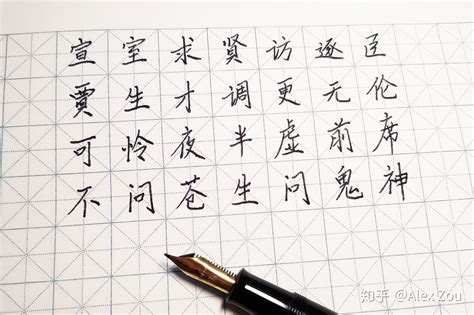 宣室求贤访逐臣
賈生才调更无伦
可怜夜半虚前席
不问苍生问鬼神
知乎 @Alex Zou